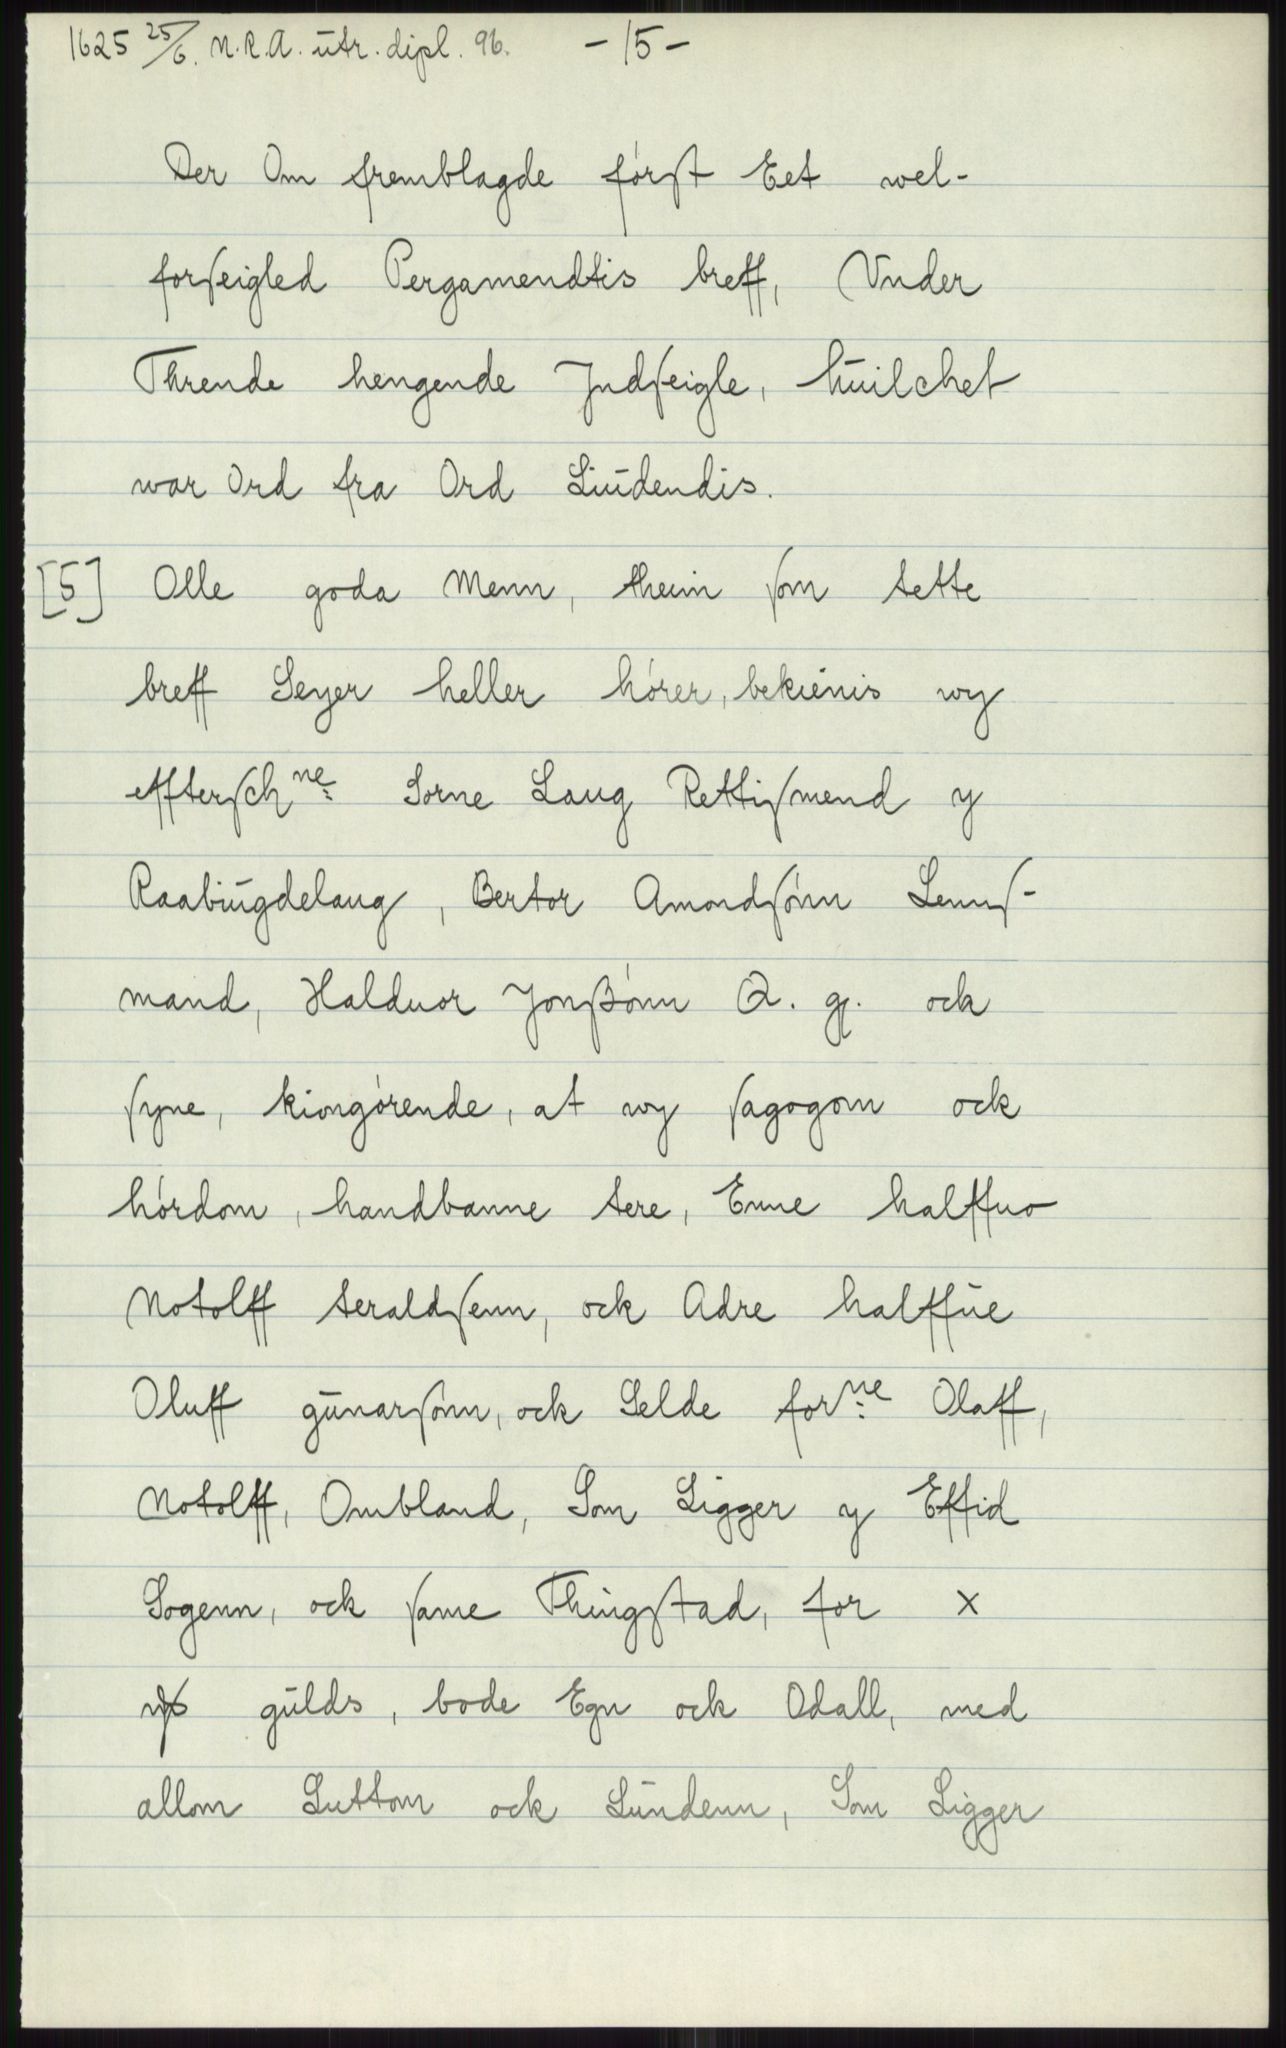 1625 25/6. N.R.A. ūtr. dipl. 96. - 15 -
Der Om fremblagde fórſt Eet wel-
forſeigled Pergamendtis breff, Vnder
Thrende hengende Jndſeigle, hūilchet
war Ord fra Ord Liūdendis.
[5] Olle goda Menn, theim ſom tette
breff Seyer heller hórer, bekienis wy
effterſchne: Sorne Laug Rettiſmend y
Raabiūgdelaug, Bertor Amondſónn Lennſ-
mand, Halduor Jonſzónn Q. g. ock
ſyne, kiongórende, at wy ſagogom ock
hórdom, handbanne tere, Enne halffuo
Notolff teraldſenn, ock Adre halffūe
Oluff gūnarſónn, ock Selde forne: Olaff,
Notolff, Ombland, Som Ligger y Effid
Sogenn, ock ſame Thingſtad, for x
gūlds, bode Egn ock Odall, med
allom Luttom ock Lūndenn, Som Ligger